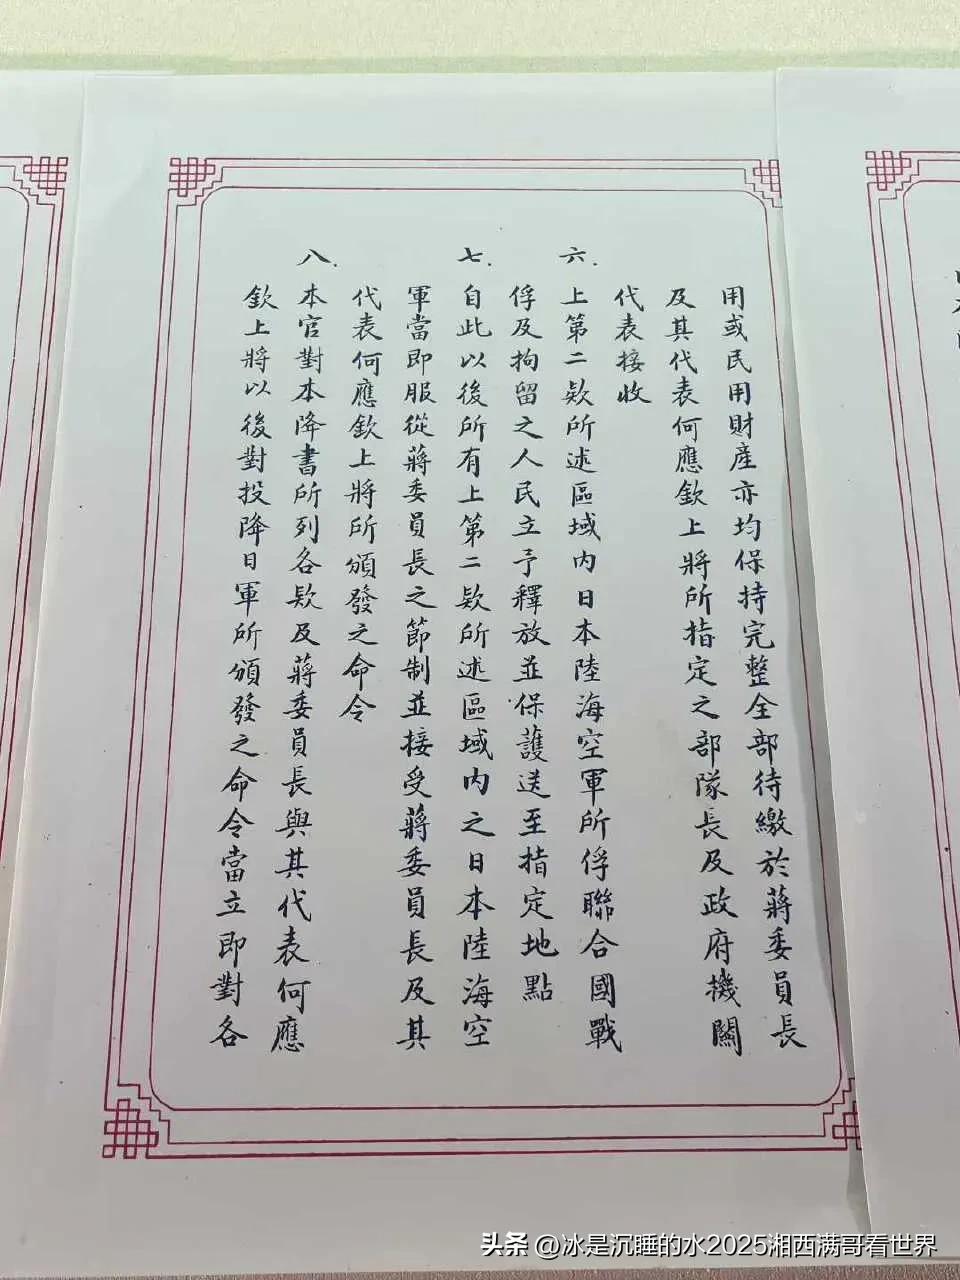 用或民用財產亦均保持完整全部待繳於蔣委員長
及其代表何應欽上將所指定之部隊長及政府機關
代表接收
六.上第二款所述區域內日本陸海空軍所俘聯合國戰
俘及拘留之人民立予釋放並保護送至指定地點
七.自此以後所有上第二款所述區域內之日本陸海空
軍當即服從蔣委員長之節制並接受蔣委員長及其
代表何應欽上將所頒發之命令
八.本官對本降書所列各款及蔣委員長與其代表何應
欽上將以後對投降日軍所頒發之命令當立即對各
头条 @冰是沉睡的水2025湘西满哥看世界